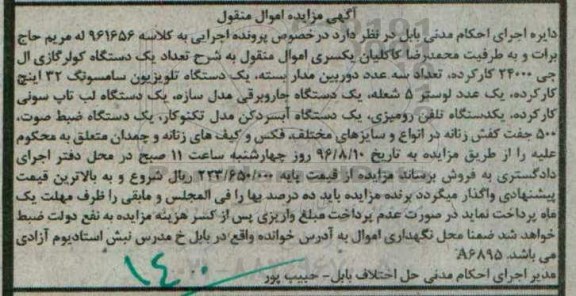 آگهی مزایده اموال منقول
دایره اجرای احکام مدنی بابل در نظر دارد درخصوص پرونده اجرایی به کلاسه ۹۶۱۶۵۶ له مریم حاج
برات و به طرفیت محمدرضا کاکلیان یکسری اموال منقول به شرح تعداد یک دستگاه کولرگازی ال
جی ۲۴۰۰۰ کارکرده، تعداد سه عدد دوربین مدار بسته، یک دستگاه تلویزیون سامسونگ ۳۲ اینچ
کارکرده، یک عدد لوستر ۵ شعله، یک دستگاه جاروبرقی مدل سازه، یک دستگاه لب تاپ سونی
کارکرده، یکدستگاه تلفن رومیزی، یک دستگاه آبسردکن مدل تکنوکار، یک دستگاه ضبط صوت،
۵۰۰ جفت کفش زنانه در انواع و سایزهای مختلف، فکس و کیف های زنانه و چمدان متعلق به محکوم
علیه را از طریق مزایده به تاریخ ۹۶/۸/۱۰ روز چهارشنبه ساعت ۱۱ صبح در محل دفتر اجرای
دادگستری به فروش برساند مزایده از قیمت پایه ۲۳۳/۶۵۰/۰۰۰ ریال شروع و به بالاترین قیمت
پیشنهادی واگذار میگردد برنده مزایده باید ده درصد بها را فی المجلس و مابقی را ظرف مهلت یک
ماه پرداخت نماید در صورت عدم پرداخت مبلغ واریزی پس از کسر هزینه مزایده به نفع دولت ضبط
خواهد شد ضمنا محل نگهداری اموال به آدرس خوانده واقع در بابل خ مدرس نبش استادیوم آزادی
می باشد. A۶۸۹۵
مدیر اجرای احکام مدنی حل اختلاف بابل- حبیب پور
۱۴۰۰